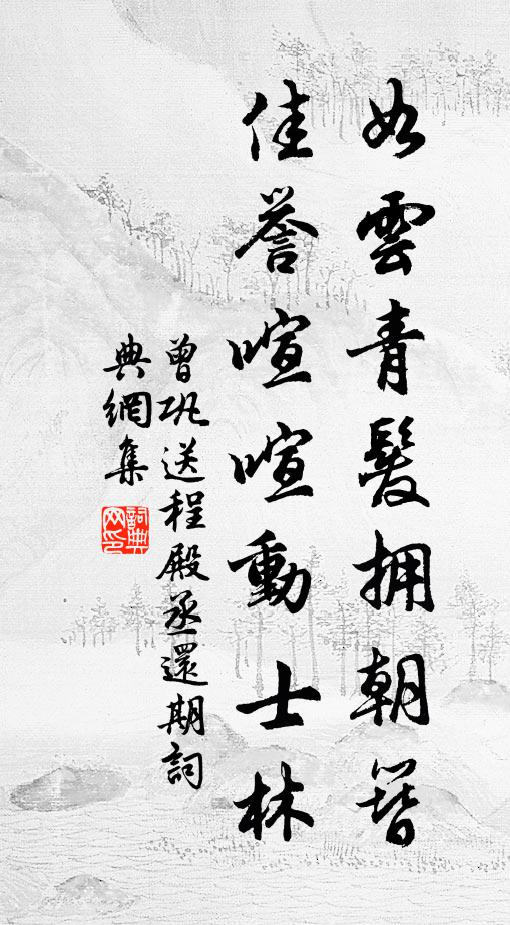 如雲青髮拥朝簪
佳譽喧喧動士林
曾巩送程殿丞還期詞
典網集
詞典网印